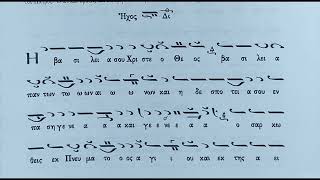 Ἦχος Δι
Η βα σι λει α σου Χρι στε ο Θε ος βα σι λει α
παν των των αι ω νων και η δε σπο τει α σου εν
πα ση γε νε α α και γε νε α α ο σαρ κω
θεις εκ Πνευ μα το ος α γι ι ου και εκ της α ει